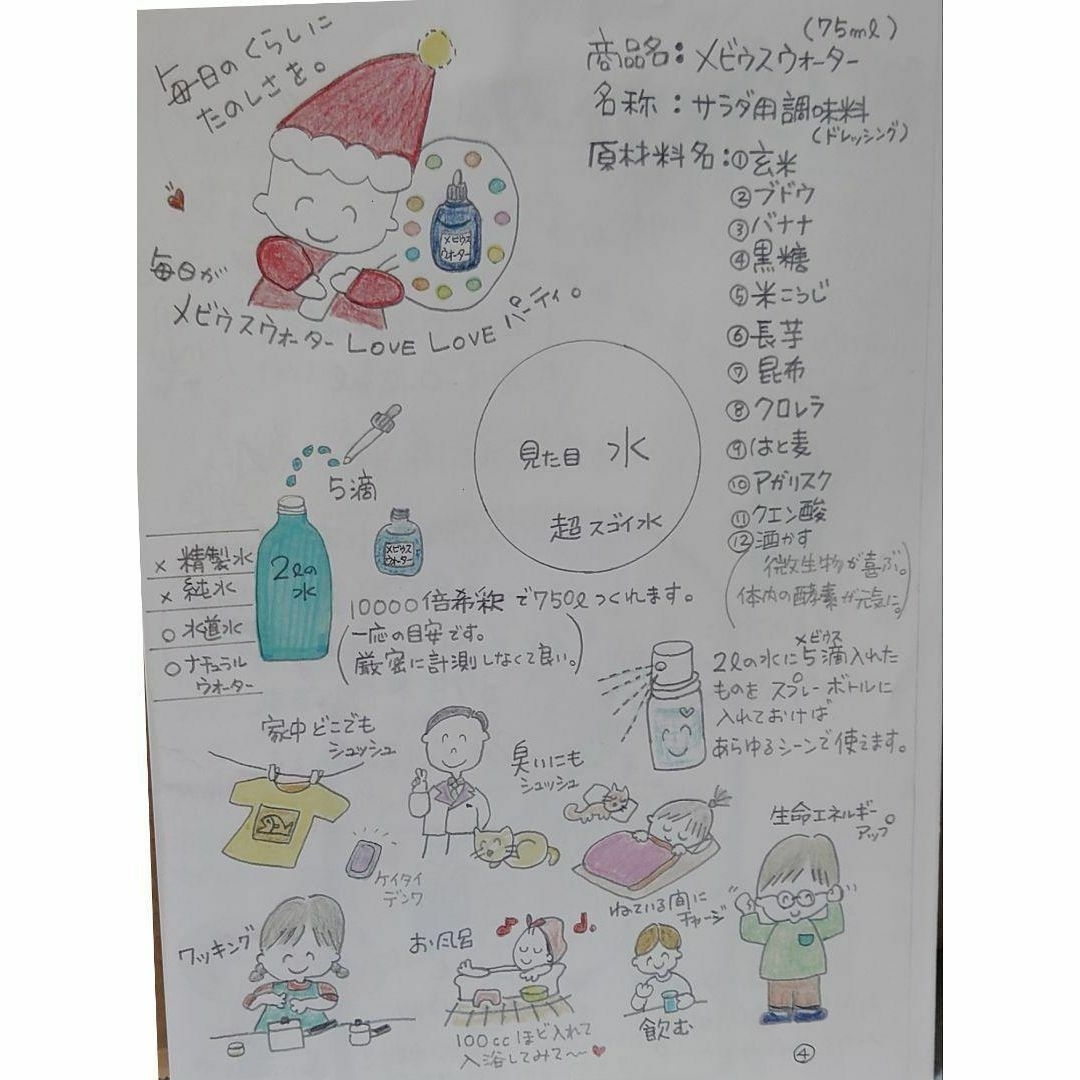 毎日のくらしに
たのしさを。
毎日が
メビウスウォーター LOVE LOVE パーティ。
メビウス
ウォーター
(75ml)
商品名:メビウスウォーター
名称:サラダ用調味料
(ドレッシング)
原材料名:①玄米
②ブドウ
③バナナ
④黒糖
⑤米こうじ
⑥長芋
⑦昆布
⑧クロレラ
⑨はと麦
⑩アガリスク
⑪クエン酸
⑫酒かす
(微生物が喜ぶ。
体内の酵素が元気に。)
見た目 水
超スゴイ水
5滴
2lの
水
メビウス
ウォーター
× 精製水
× 純水
○ 水道水
○ ナチュラル
ウォーター
10000倍希釈で750lつくれます。
(一応の目安です。
厳密に計測しなくて良い。)
メビウス
2lの水に5滴入れた
ものをスプレーボトルに
入れておけば
あらゆるシーンで使えます。
家中どこでも
シュッシュ
ケイタイ
デンワ
臭いにも
シュッシュ
ねている間に
チャージ
生命エネルギー
アップ。
クッキング
お風呂
100ccほど入れて
入浴してみて〜♥
飲む
④